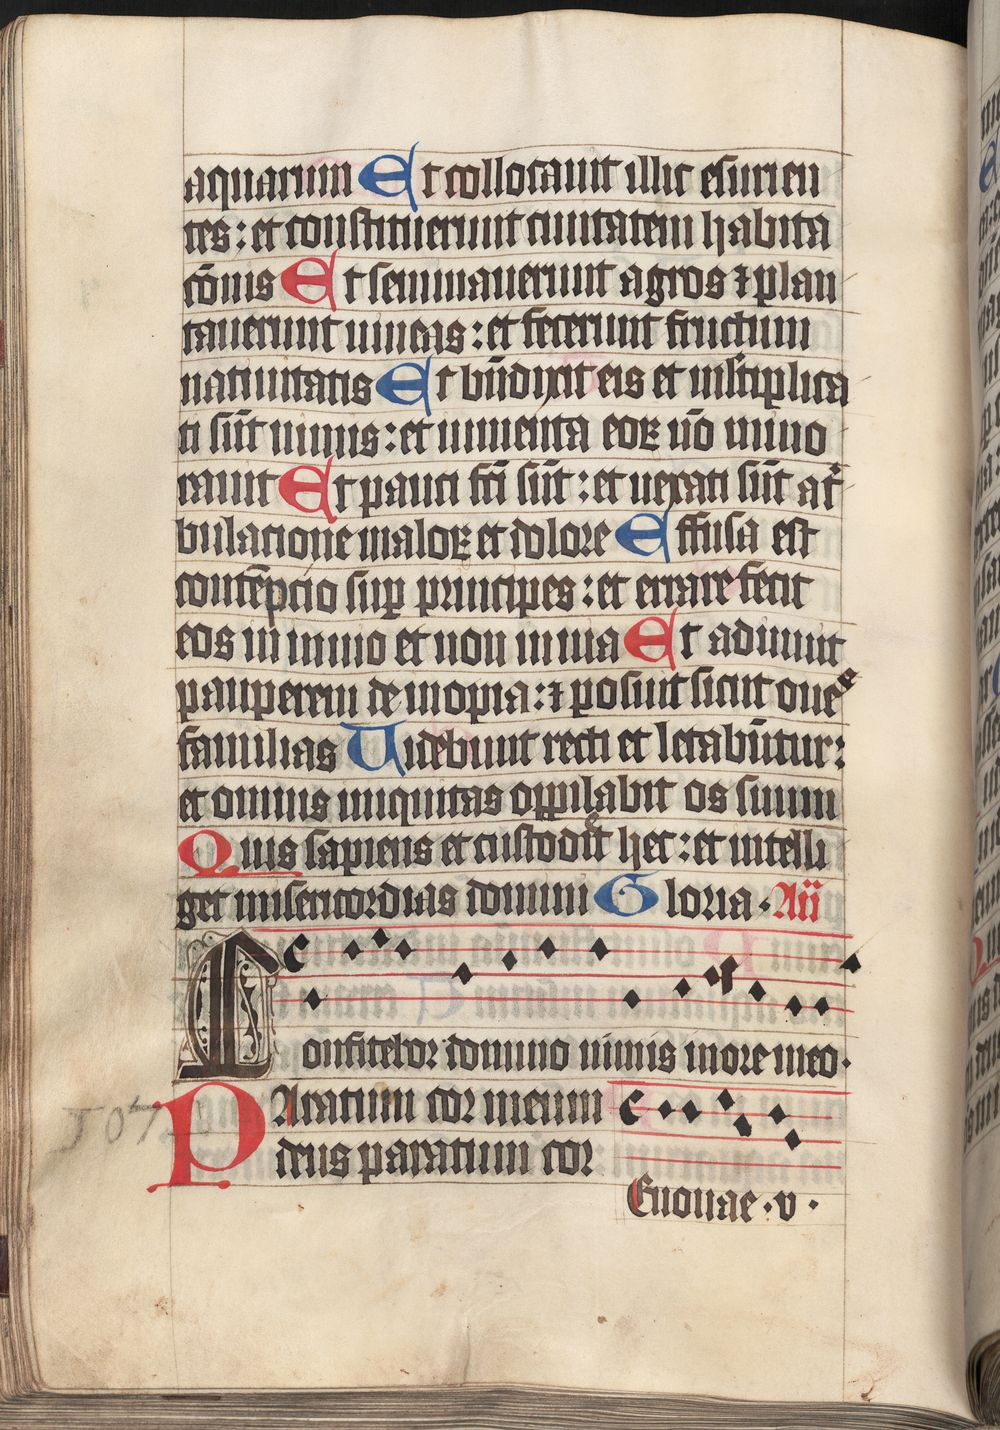 aquarum Et collocauit illic esurien
tes: et constituerunt ciuitatem habita
cōnis Et seminauerunt agros ⁊ plan
tauerunt uineas: et fecerunt fructum
natiuitatis Et bn̄dixit eis et ml̄tiplica
ti sūt nimis: et iumenta eoꝝ nō mino
rauit Et pauci fc̄i sūt: et uexati sūt a tͥ
bulacione maloꝝ et dolore Effusa est
contēpcio suꝑ principes: et errare fecit
eos in inuio et non in uia Et adiuuit
pauperem de inopia: ⁊ posuit sicut oues
familias Uidebunt recti et letabūtur:
et omnis iniquitas oppilabit os suum
Quis sapiens et custodiet hec: et intelli
get misericordias domini Gloria. An̄
Confitebor domino nimis in ore meo.
PAratum cor meum
deus paratum cor
Euouae . v .
107